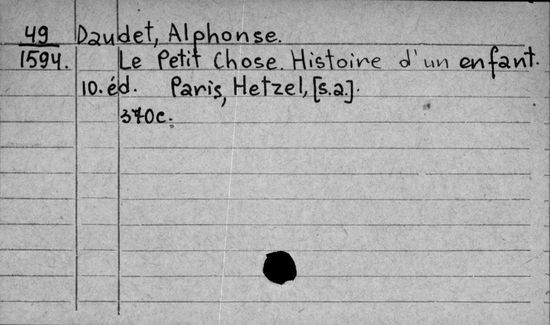 49 Daudet, Alphonse.
1594. Le Petit Chose. Histoire d'un enfant.
10. éd. Paris, Hetzel, [s.a.].
370c.